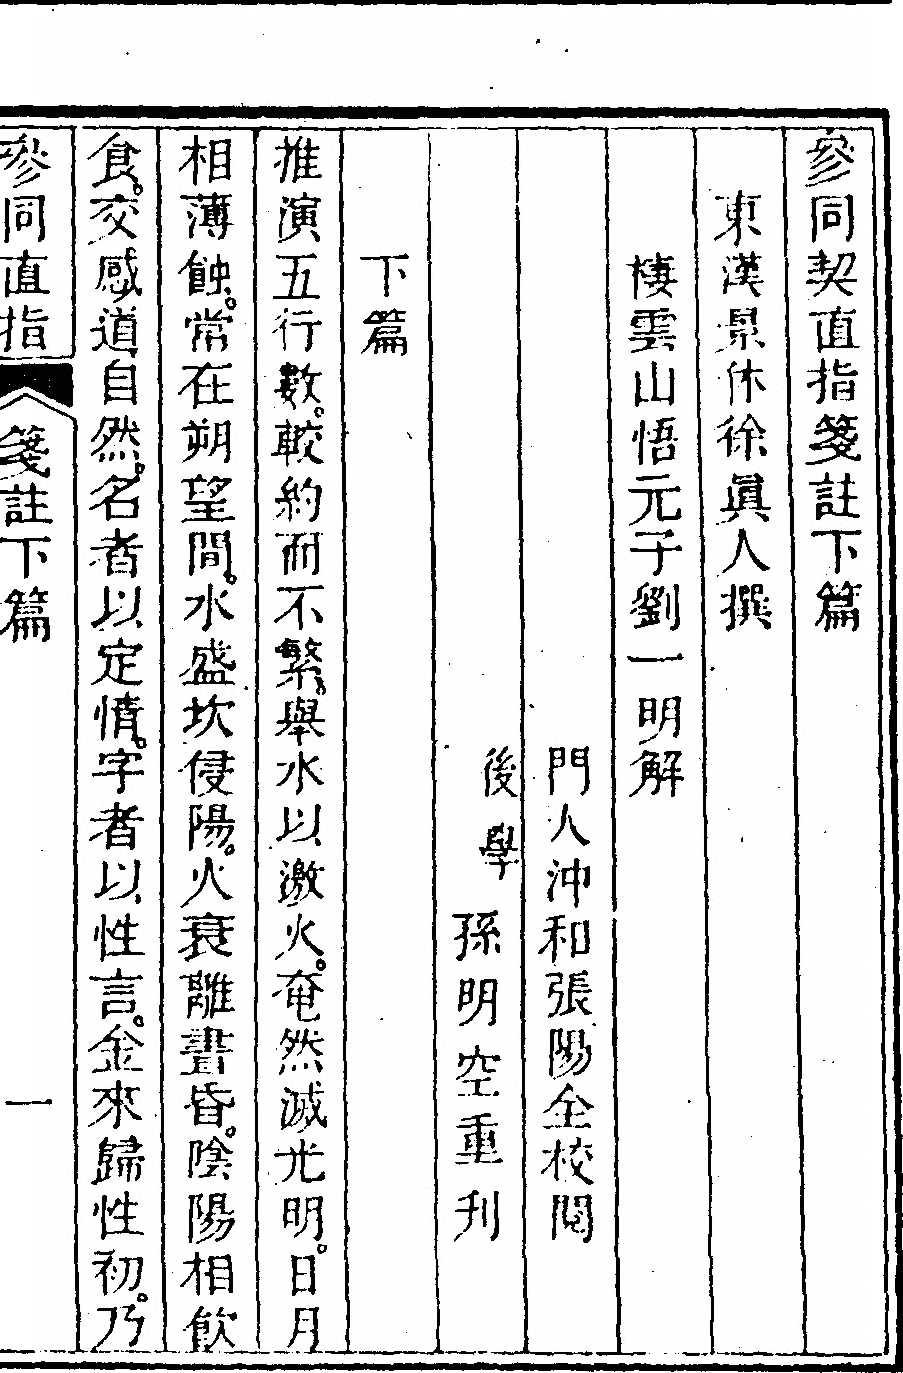 參同契直指箋註下篇
東漢景休徐眞人撰
棲雲山悟元子劉一明解
門人沖和張陽全校閱
後學孫明空重刋
下篇
推演五行數。較約而不繁。舉水以激火。奄然滅光明。日月
相薄蝕。常在朔望間。水盛坎侵陽。火衰離晝昏。陰陽相飲
食。交感道自然。名者以定情。字者以性言。金來歸性初。乃
參同直指 箋註下篇 一